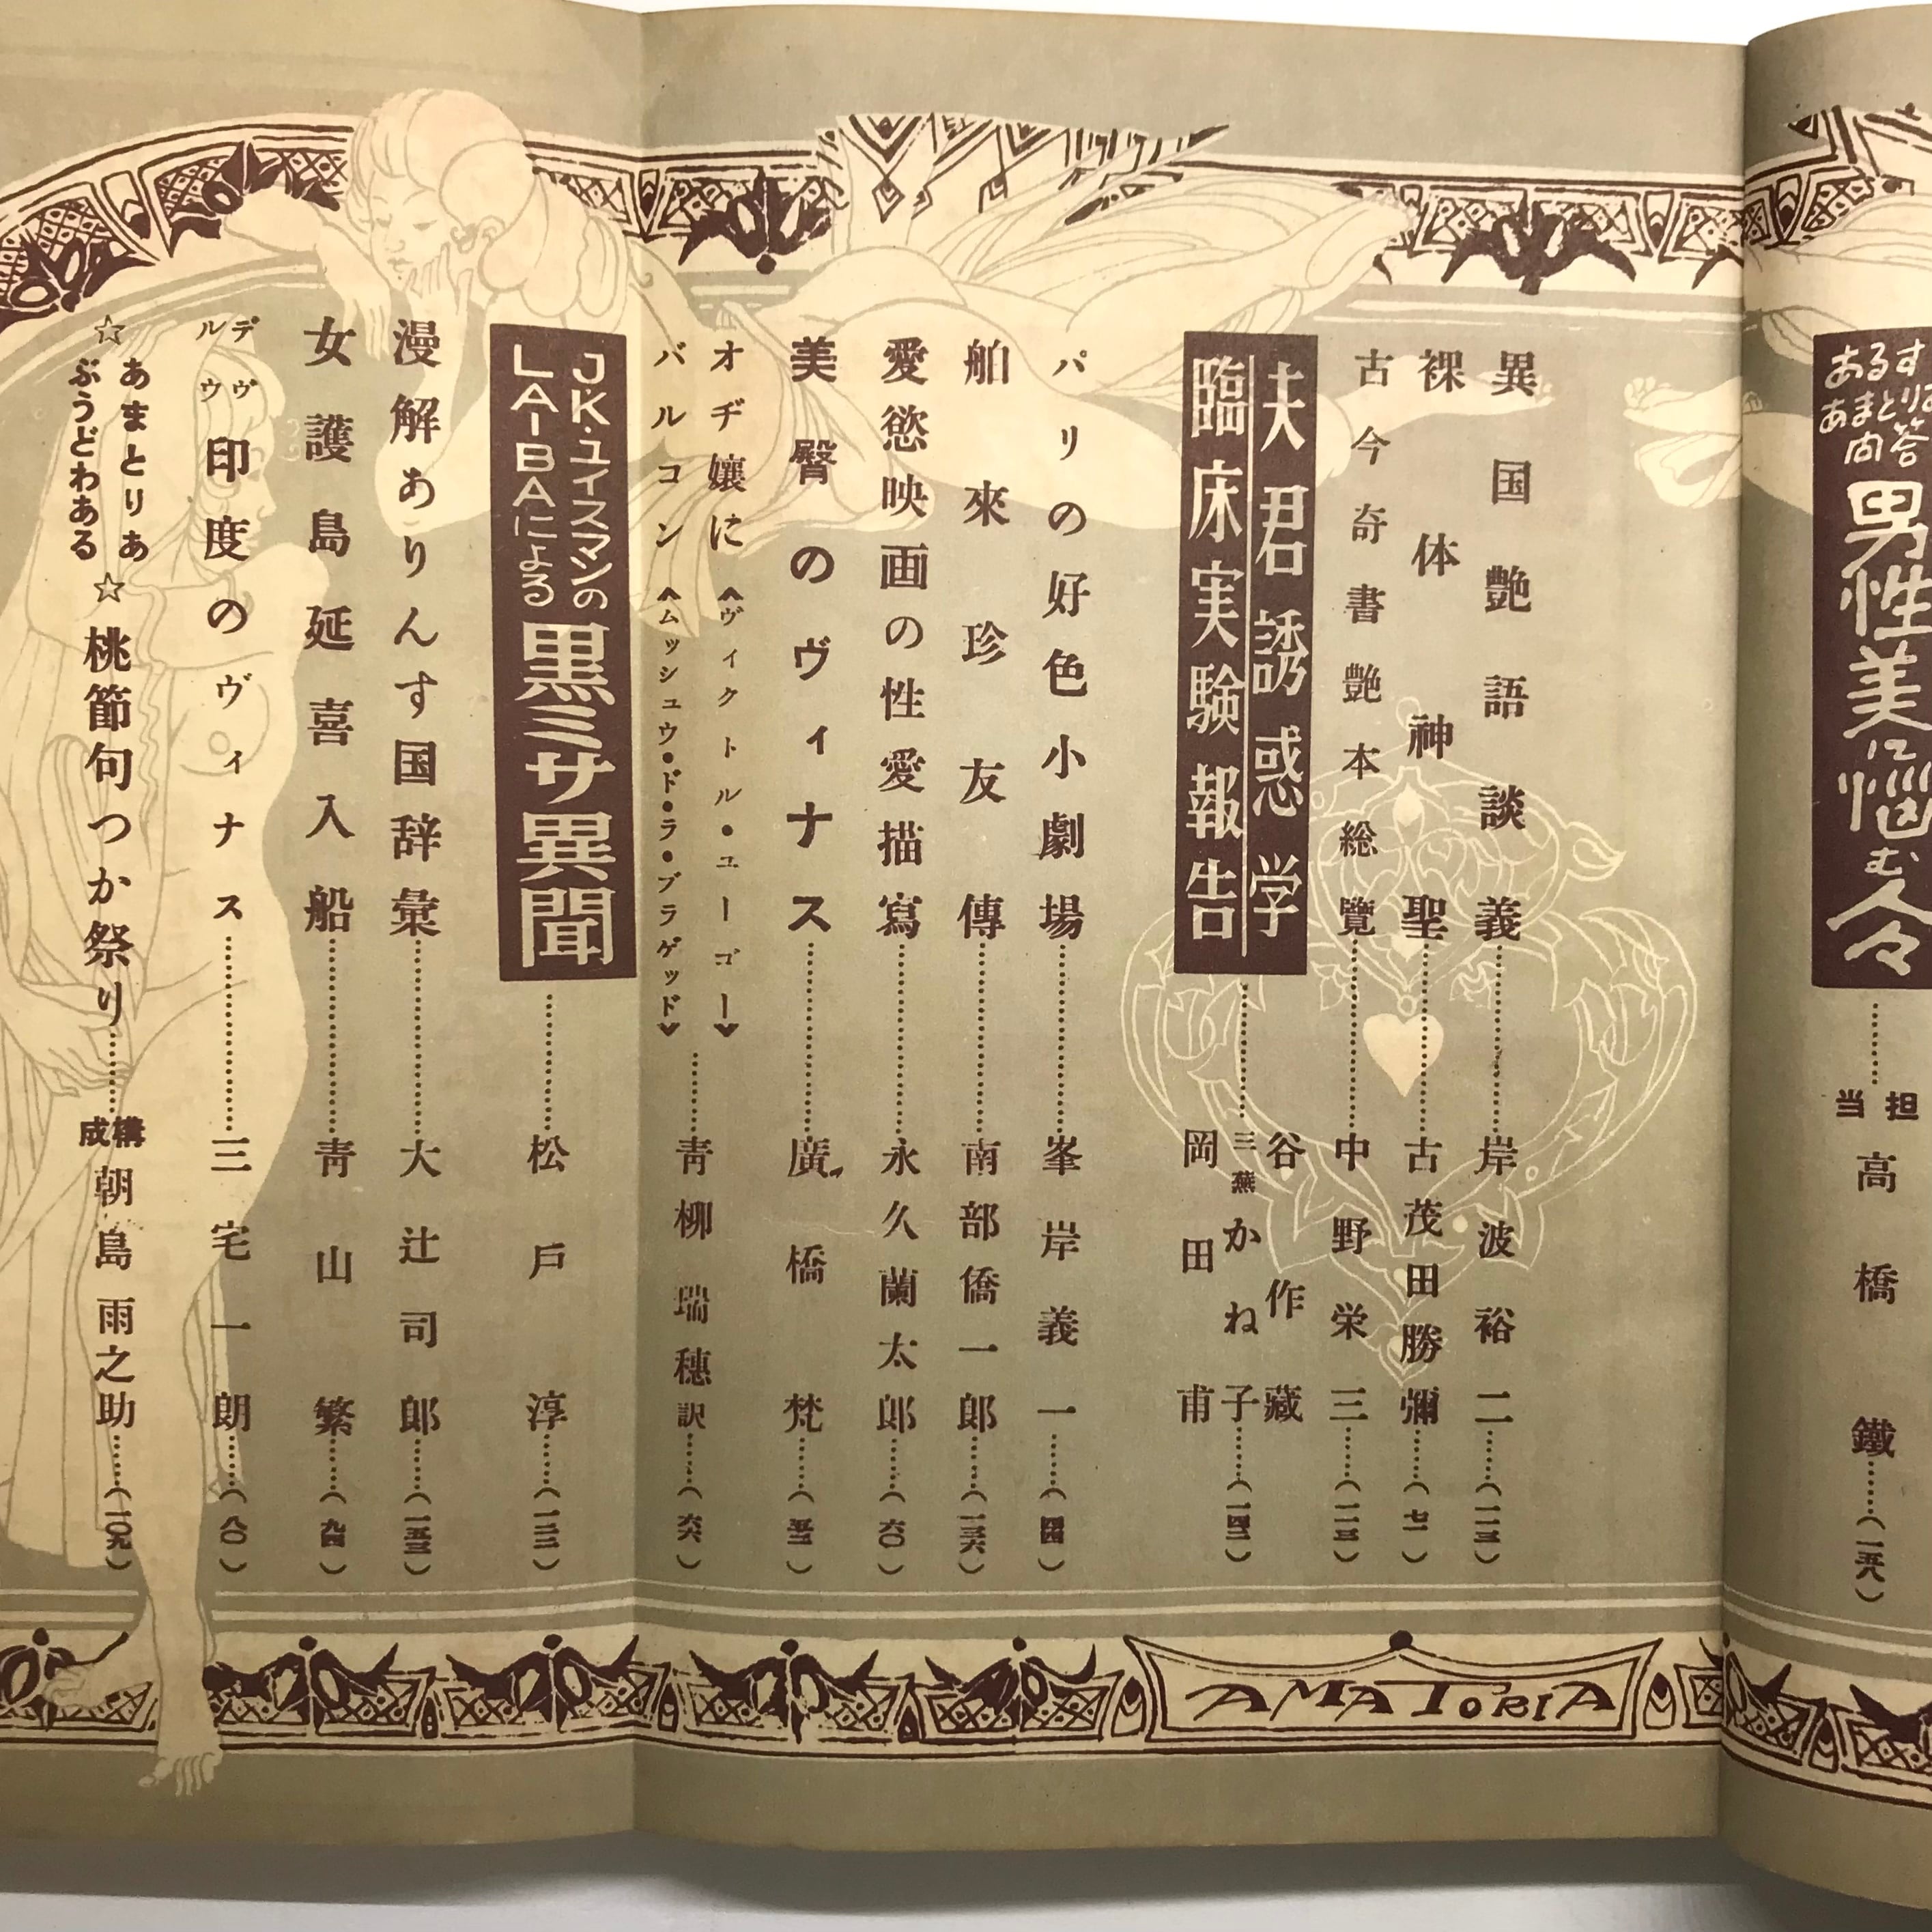 あるす
あまとりあ
問答
男性美に悩む人々
担当
高橋鐵
(一五八)
異国艶語談義
岸波裕二
(一一三)
裸体神聖
古茂田勝彌
(七一)
古今奇書艶本総覽
中野栄三
(一一三)
夫君誘惑学
臨床実験報告
谷作藏
三燕かね子
岡田甫
(一四二)
パリの好色小劇場
峯岸義一
(四四)
舶來珍友傳
南部僑一郎
(一三六)
愛慾映画の性愛描寫
永久蘭太郎
(六〇)
美臀のヴィナス
廣橋梵
(五二)
オヂ孃に《ヴィクトル・ユーゴー》
バルコン《ムッシュウ・ド・ラ・ブラゲッド》
靑柳瑞穗訳
(六六)
J・K・ユイスマンの
LA-BAによる
黒ミサ異聞
松戶淳
(一二二)
漫解ありんす国辞彙
大辻司郎
(一五三)
女護島延喜入船
靑山繁
(九四)
デヴ
ルウ
印度のヴィナス
三宅一朗
(八〇)
☆あまとりあ
ぶうどわある☆
桃節句つか祭り
構成
朝島雨之助
(一〇九)
AMATORIA